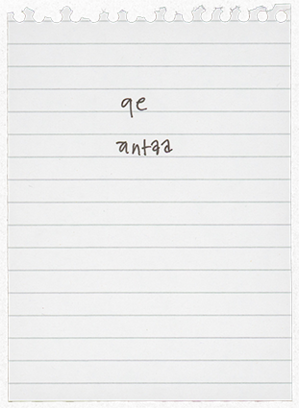 qe
antaa